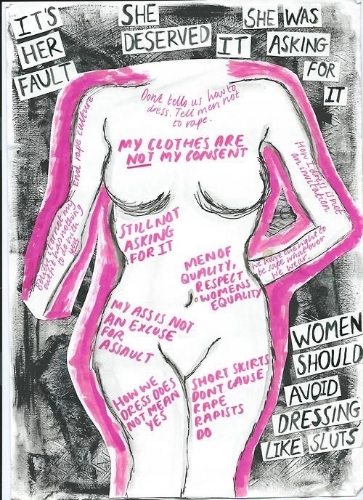 IT'S
HER
FAULT
SHE
DESERVED
IT
SHE WAS
ASKING
FOR
IT
Dont tells us how to
dress. Tell men not
to rape.
MY CLOTHES ARE
NOT MY CONSENT
End rape culture
How I dress is not
an invitation
STILL NOT
ASKING
FOR IT
MEN OF
QUALITY,
RESPECT
WOMENS
EQUALITY
be safe what ever
we wear
MY ASS IS NOT
AN EXCUSE
FOR
ASSAULT
HOW WE
DRESS DOES
NOT MEAN
YES
SHORT SKIRTS
DONT CAUSE
RAPE
RAPISTS
DO
WOMEN
SHOULD
AVOID
DRESSING
LIKE SLUTS